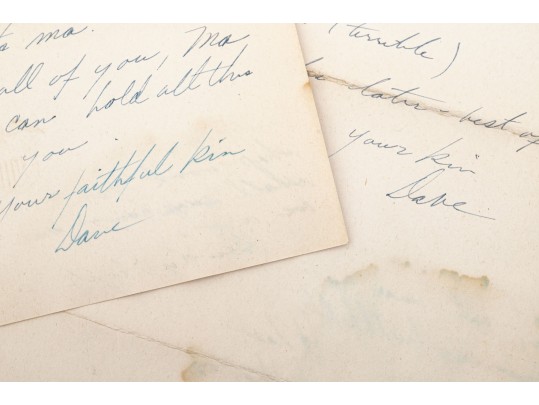 ma.
all of you, Ma
can hold all this
you.
your faithful kin
Dave
(terrible)
dates - best of
your kin
Dave.